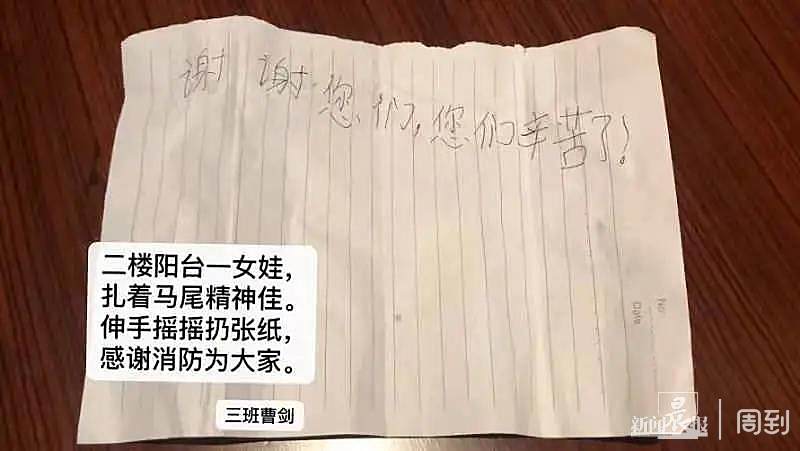 谢谢您们,您们辛苦了!
二楼阳台一女娃,
扎着马尾精神佳。
伸手摇摇扔张纸,
感谢消防为大家。
三班曹剑
No.
Date
新闻晨报 周到